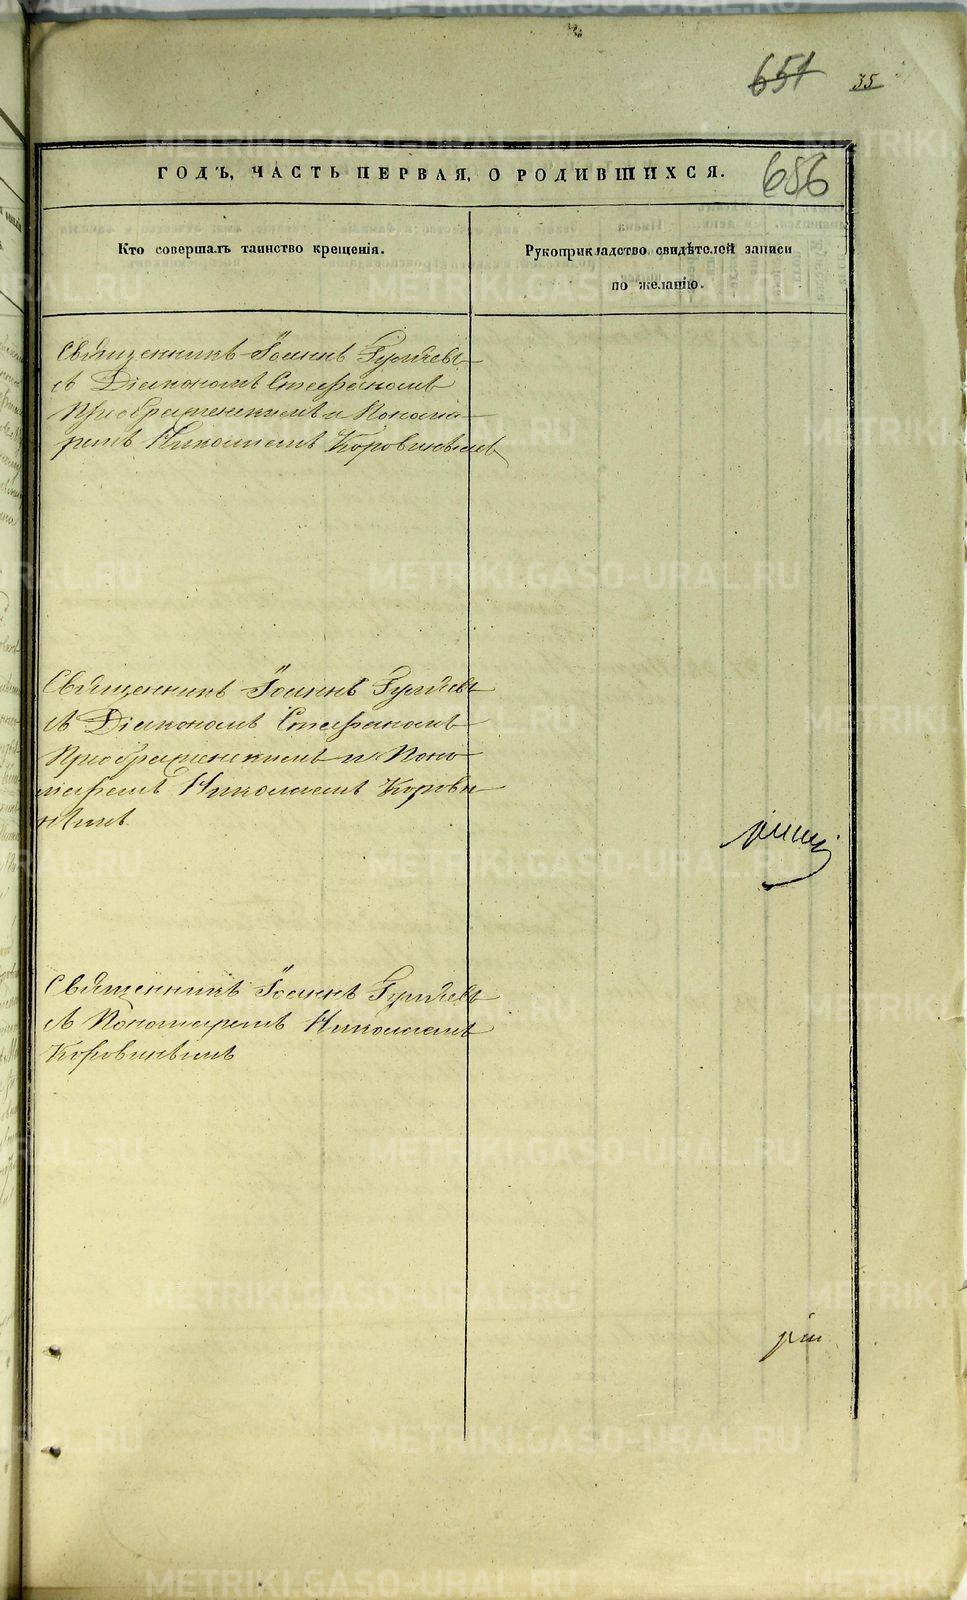 651 35
ГОДЪ, ЧАСТЬ ПЕРВАЯ, О РОДИВШИХСЯ. 656
Кто совершалъ таинство крещенія.
Рукоприкладство свидѣтелей записи
по желанію.
Священникъ Іоаннъ
съ Діакономъ Стефаномъ
Преображенскимъ и Понома-
ремъ Николаемъ Коровинымъ
Священникъ Іоаннъ
съ Діакономъ Стефаномъ
Преображенскимъ и Поно-
маремъ Николаемъ Корови-
нымъ
Священникъ Іоаннъ
съ Пономаремъ Николаемъ
Коровинымъ
METRIKI.GASO-URAL.RU